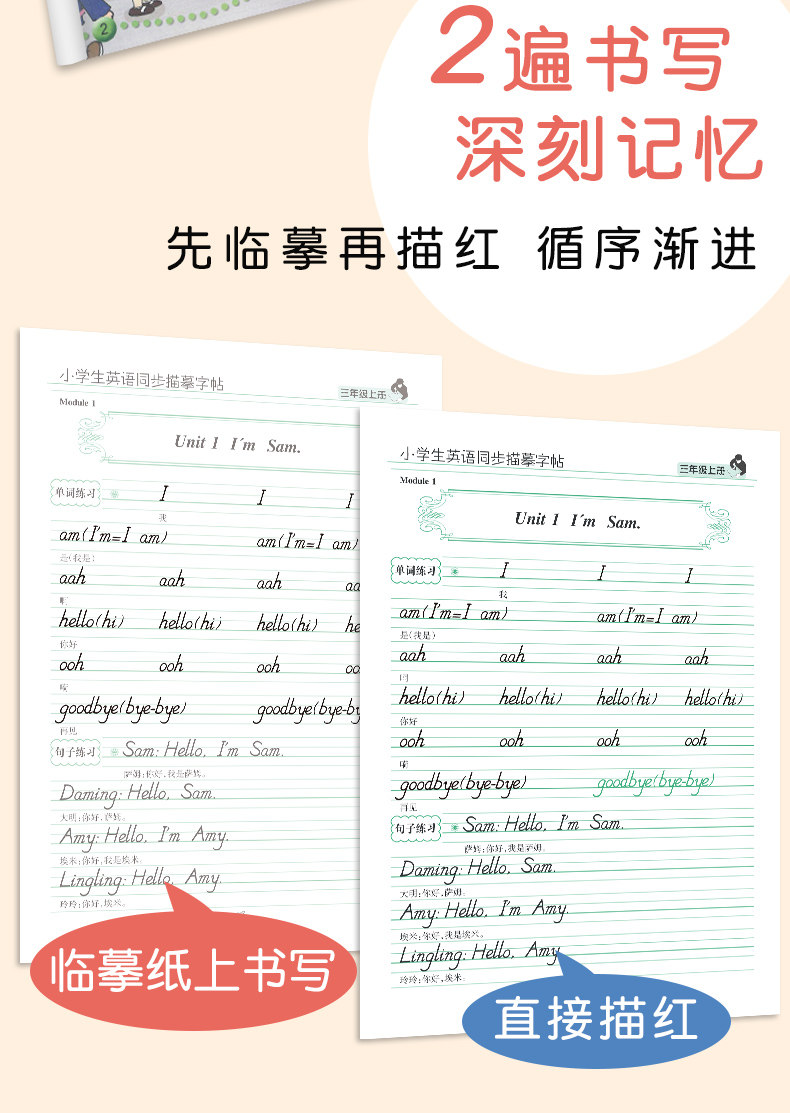 2
2遍书写
深刻记忆
先临摹再描红 循序渐进
小学生英语同步描摹字帖
三年级上册
Module 1
Unit 1 I´m Sam.
单词练习 I I I
我
am(I'm=I am) am(I'm=I am)
是(我是)
aah aah aah aa
啊
hello(hi) hello(hi) hello(hi) he
你好
ooh ooh ooh oo
嗬
goodbye(bye-bye) goodbye(bye-by
再见
句子练习 Sam: Hello, I'm Sam.
萨姆:你好,我是萨姆。
Daming: Hello, Sam.
大明:你好,萨姆。
Amy: Hello, I'm Amy.
埃米:你好,我是埃米。
Lingling: Hello, Amy.
玲玲:你好,埃米。
临摹纸上书写
小学生英语同步描摹字帖
三年级上册
Module 1
Unit 1 I´m Sam.
单词练习 I I I
我
am(I'm=I am) am(I'm=I am)
是(我是)
aah aah aah aah
啊
hello(hi) hello(hi) hello(hi) hello(hi)
你好
ooh ooh ooh ooh
嗬
goodbye(bye-bye) goodbye(bye-bye)
再见
句子练习 Sam: Hello, I'm Sam.
萨姆:你好,我是萨姆。
Daming: Hello, Sam.
大明:你好,萨姆。
Amy: Hello, I'm Amy.
埃米:你好,我是埃米。
Lingling: Hello, Amy.
玲玲:你好,埃米。
直接描红